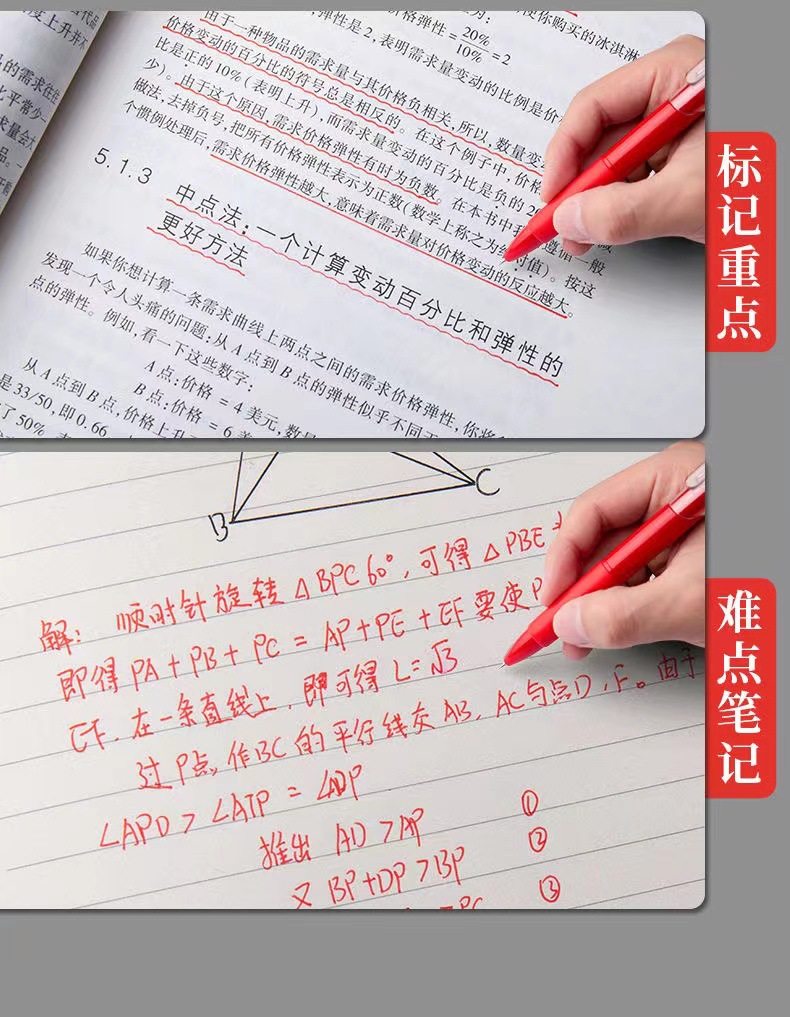 度上升并不
的需求往往
比平常少
求量会大
品。
价格弹性 = 20%/10% = 2
使你购买的冰淇淋
弹性是2，表明需求量变动的比例是价
由于一种物品的需求量与其价格负相关，所以，数量变
价格变动的百分比的符号总是相反的。在这个例子中，价格
比是正的10%（表明上升），而需求量变动的百分比是负的2
少）。由于这个原因，需求价格弹性有时为负数。在本书中我
遵循一般
做法，去掉负号，把所有价格弹性表示为正数（数学上称之为绝对值）。按这
个惯例处理后，需求价格弹性越大，意味着需求量对价格变动的反应越大。
5.1.3 中点法：一个计算变动百分比和弹性的
更好方法
如果你想计算一条需求曲线上两点之间的需求价格弹性，你将
发现一个令人头痛的问题：从A点到B点的弹性似乎不同于
点的弹性。例如，看一下这些数字：
A点：价格 = 4美元，数
B点：价格 = 6美
从A点到B点，价格上升
是33/50，即0.66
了50%
标记重点
B
C
解：顺时针旋转△BPC 60°，可得△PBE
即得PA+PB+PC=AP+PE+EF要使P
EF，在一条直线上，即可得L=√3
过P点，作BC的平行线交AB，AC与点D，F。由于
∠APD>∠ATP=∠ADP
推出 AD>AP ①
又 BP+DP>BP ②
PC ③
难点笔记